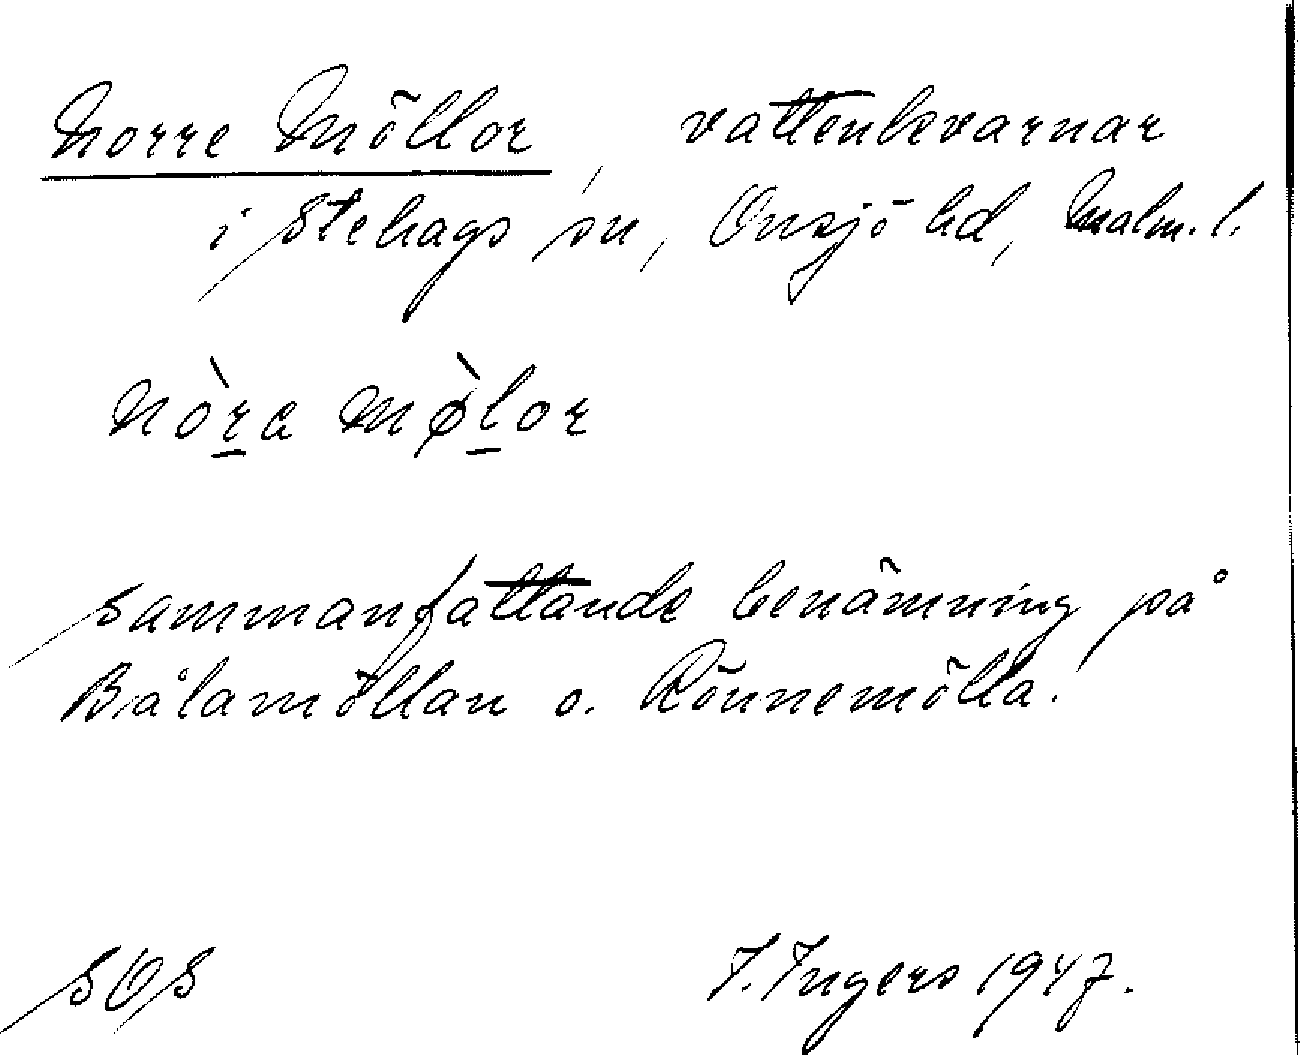 Norre Möllor, vattenkvarnar
i Stehags sn, Onsjö hd, Malm. l.
nòr̲a mø̀l̲or
sammanfattande benämning på
Bålamöllan o. Rönnemölla.
SOS I. Ingers 1947.